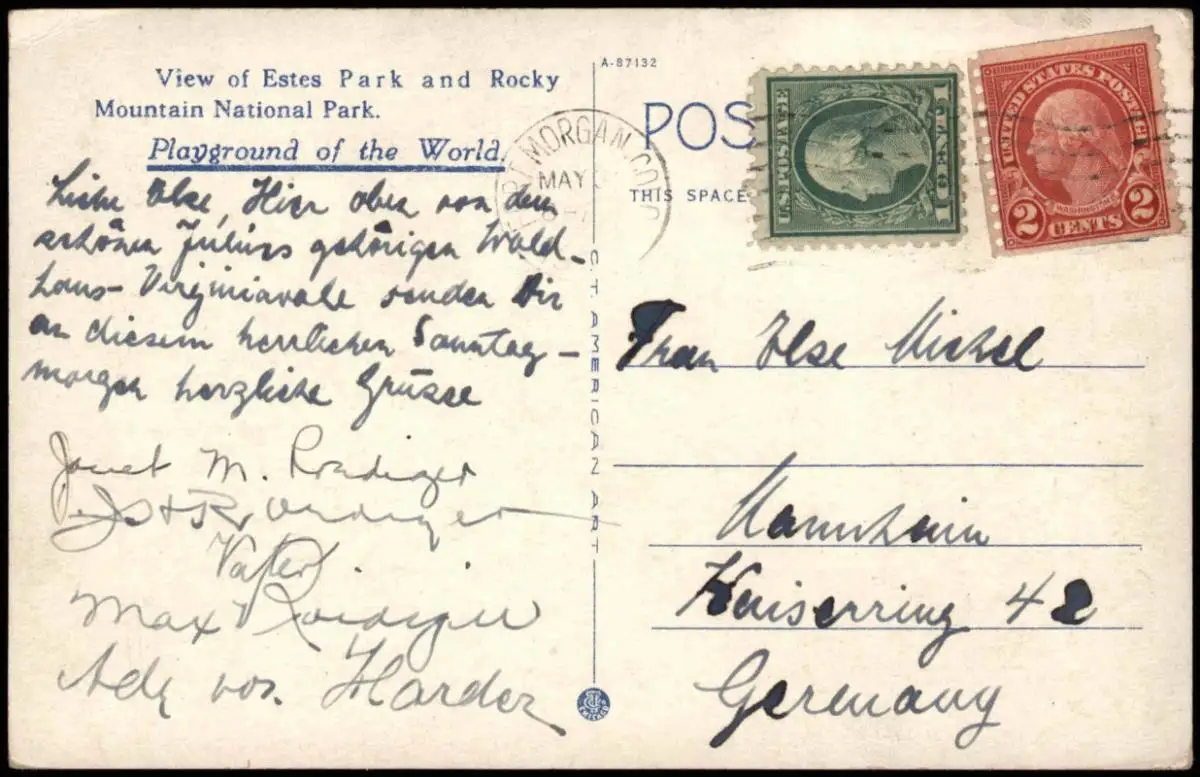 View of Estes Park and Rocky
Mountain National Park.
Playground of the World.
Liebe Else, Hier oben von dem
schönen Julius gehörigen Wald-
haus- Virginiavale senden Dir
an diesem herrlichen Sonntag-
morgen herzliche Grüsse
Janet M. Roediger
Roediger
Vater.
Max Roediger
Adele von Harder
A-87132
MORGAN COLO
MAY
POS
THIS SPACE
U.S. POSTAGE
1 CENT 1
UNITED STATES POSTAGE
WASHINGTON
2 CENTS 2
C. T. AMERICAN ART
CHICAGO
Frau Else Michel
Mannheim
Kaiserring 42
Germany